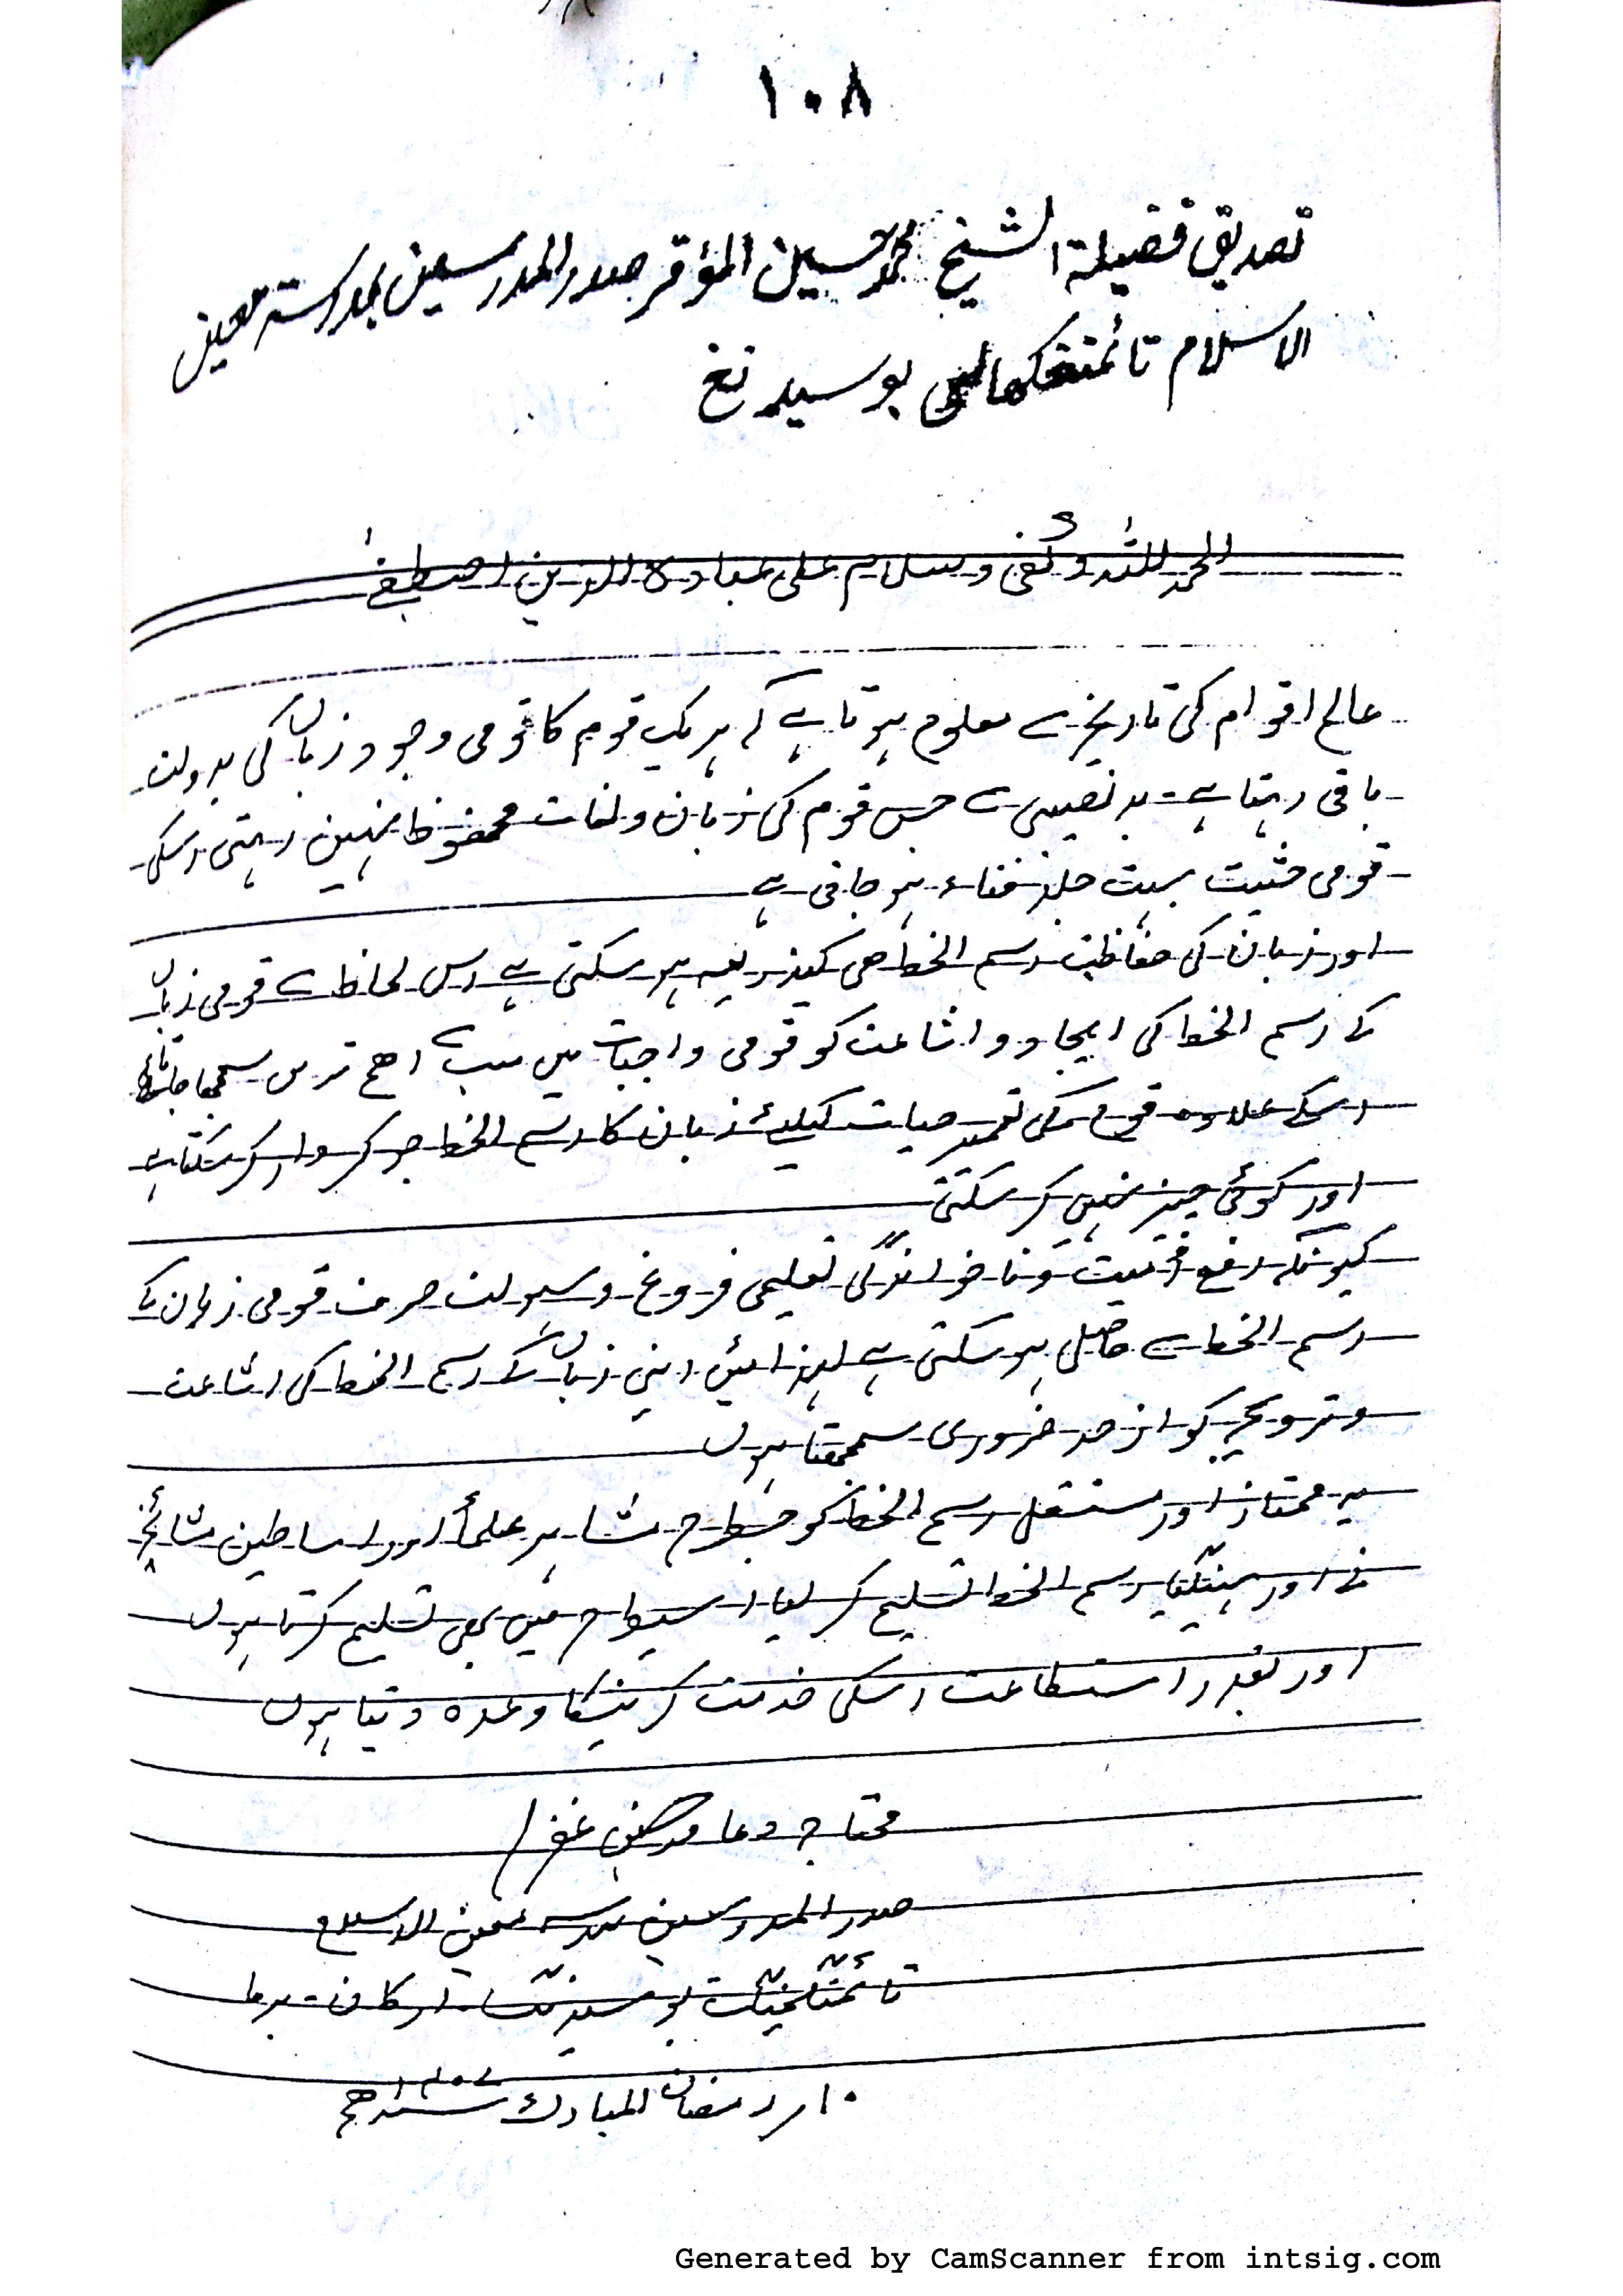 ١٠٨
تصديق فضيلة الشيخ محمد حسين المؤقر صدر المدرسين بمدرسة معين
الاسلام بوسيدنغ
الحمد للله وكفى وسلام على عباده الذين اصطفىٰ
عالم اقوام کی تاریخ سے معلوم ہوتا ہے کہ ہریک قوم کا قومی وجود زباں کی بدولت
باقی رہتا ہے۔ بدنصیبی سے جس قوم کی زبان ولغات محفوظ نہیں رہتی اسکی
قومی حثیت بہت جلد فناء ہوجاتی ہے
اور زبان کی حفاظت رسم الخط ھی کیذریعہ ہوسکتی ہے اس لحاظ سے قومی زباں
کے رسم الخط کی ایجاد و اشاعت کو قومی واجبات میں سب سے اھم ترس سمجھا
اسکے علاوہ قوم کی تعمیر حیات کیلیئے زبان کا رسم الخط جو کروار کرسکتا ہے
اور کوئی چیز نہیں کر سکتی
کیونکہ رفع وناخواندگی تعلیمی فروغ وسہولت صرف قومی زبان کے
رسم الخط سے حاصل ہوسکتی ہے لہذا میں اپنی زباں کے رسم الخط کی اشاعت
وترویج کو از حد ضروری سمجھتا ہوں
یہ ممتاز اور مستقل رسم الخط کو جسطرح مشاہیر علمأ اور اساطین مشائخ
نے اور رسم الخط تسلیم کرلیا اسیطرح میں بھی تسلیم کرتا ہوں
اور بقدر استطاعت اسکی خدمت کرنیکا وعدہ دیتا ہوں
محتاج دعا غفرلہ
صدر المدرسین مدرسہ معین الاسلام
ارکان۔ برما
١٠ر رمضان المبارک ھج